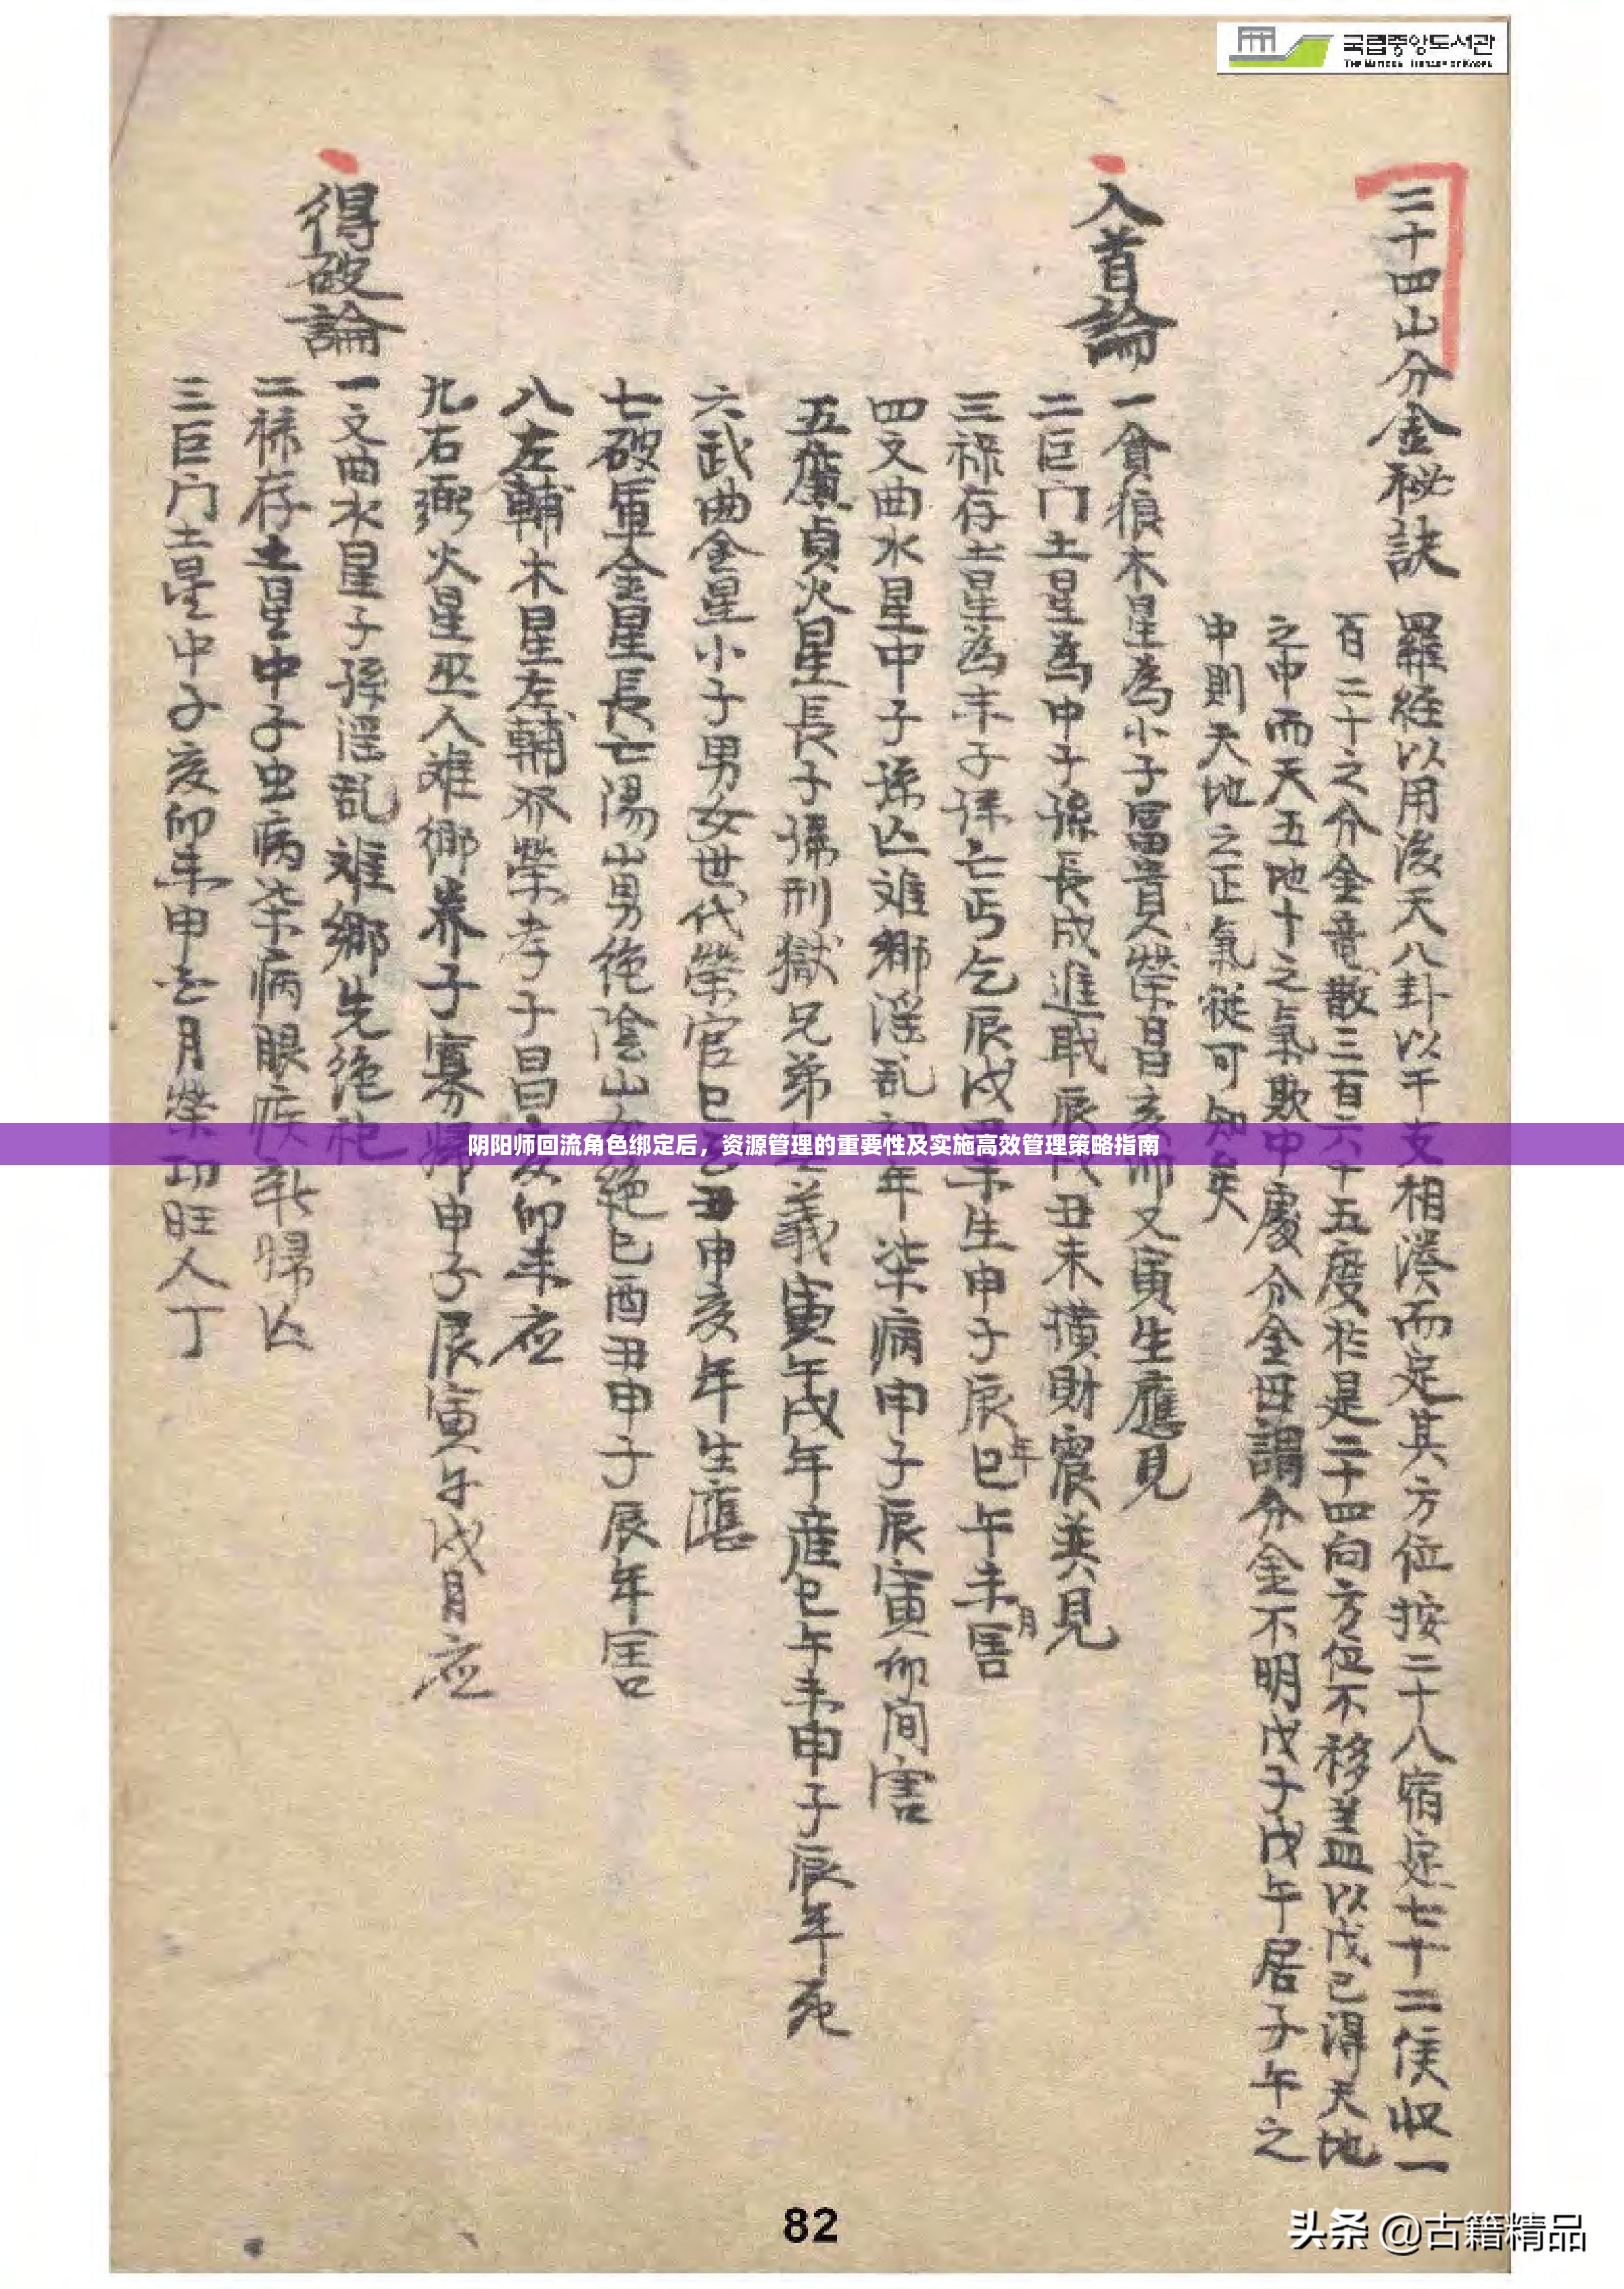 국립중앙도서관
THE NATIONAL LIBRARY OF KOREA
二十四山分金秘訣
羅経以用後天八卦以干支相湊而定其方位按二十八宿定七十二侯収一
百二十之分金竜散三百六十五度於是二十四向方位不移盖以戊己得天地
之中而天五地十之氣欺中處分金毋謂分金不明戊子戊午居子午之
中則天地之正氣従可知矣
入首論
一貪狼木星為小子冨貴榮昌亥卯又寅生應見
二巨门土星為中子孫長成進戢辰戌丑未橫財震美見
三祿存土星為末子孫亡丐乞辰戌丑未生申子辰年巳午未月害
四文曲水星中子孫亾难鄉淫乱年染病申子辰寅卯间害
五廉貞火星長子孫刑獄兄弟義寅午戌年産巳午未申子辰年死
六武曲金星小子男女世代榮官巳丑申亥年生應
七破軍金星長亡陽山男绝陰山女绝巳酉丑申子辰年害
八左輔木星左輔孝子昌亥卯未应
九右弼火星巫入难鄉养子寡婦申子辰寅午戌月应
得破論
一文曲水星子孫淫乱难鄉先绝祀
二祿存土星中子虫病染病眼疾婦亾
三巨门土星中子亥卯未申月榮功旺人丁
阴阳师回流角色绑定后，资源管理的重要性及实施高效管理策略指南
82
头条 @古籍精品